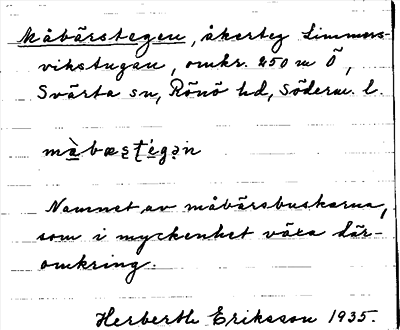 Måbärstegen, åkerteg Limmers-
vikstugan, omkr. 250 m Ö,
Svärta sn, Rönö hd, Söderm. l.
Namnet av måbärsbuskarna,
som i myckenhet växa där-
omkring.
Herberth Eriksson 1935.